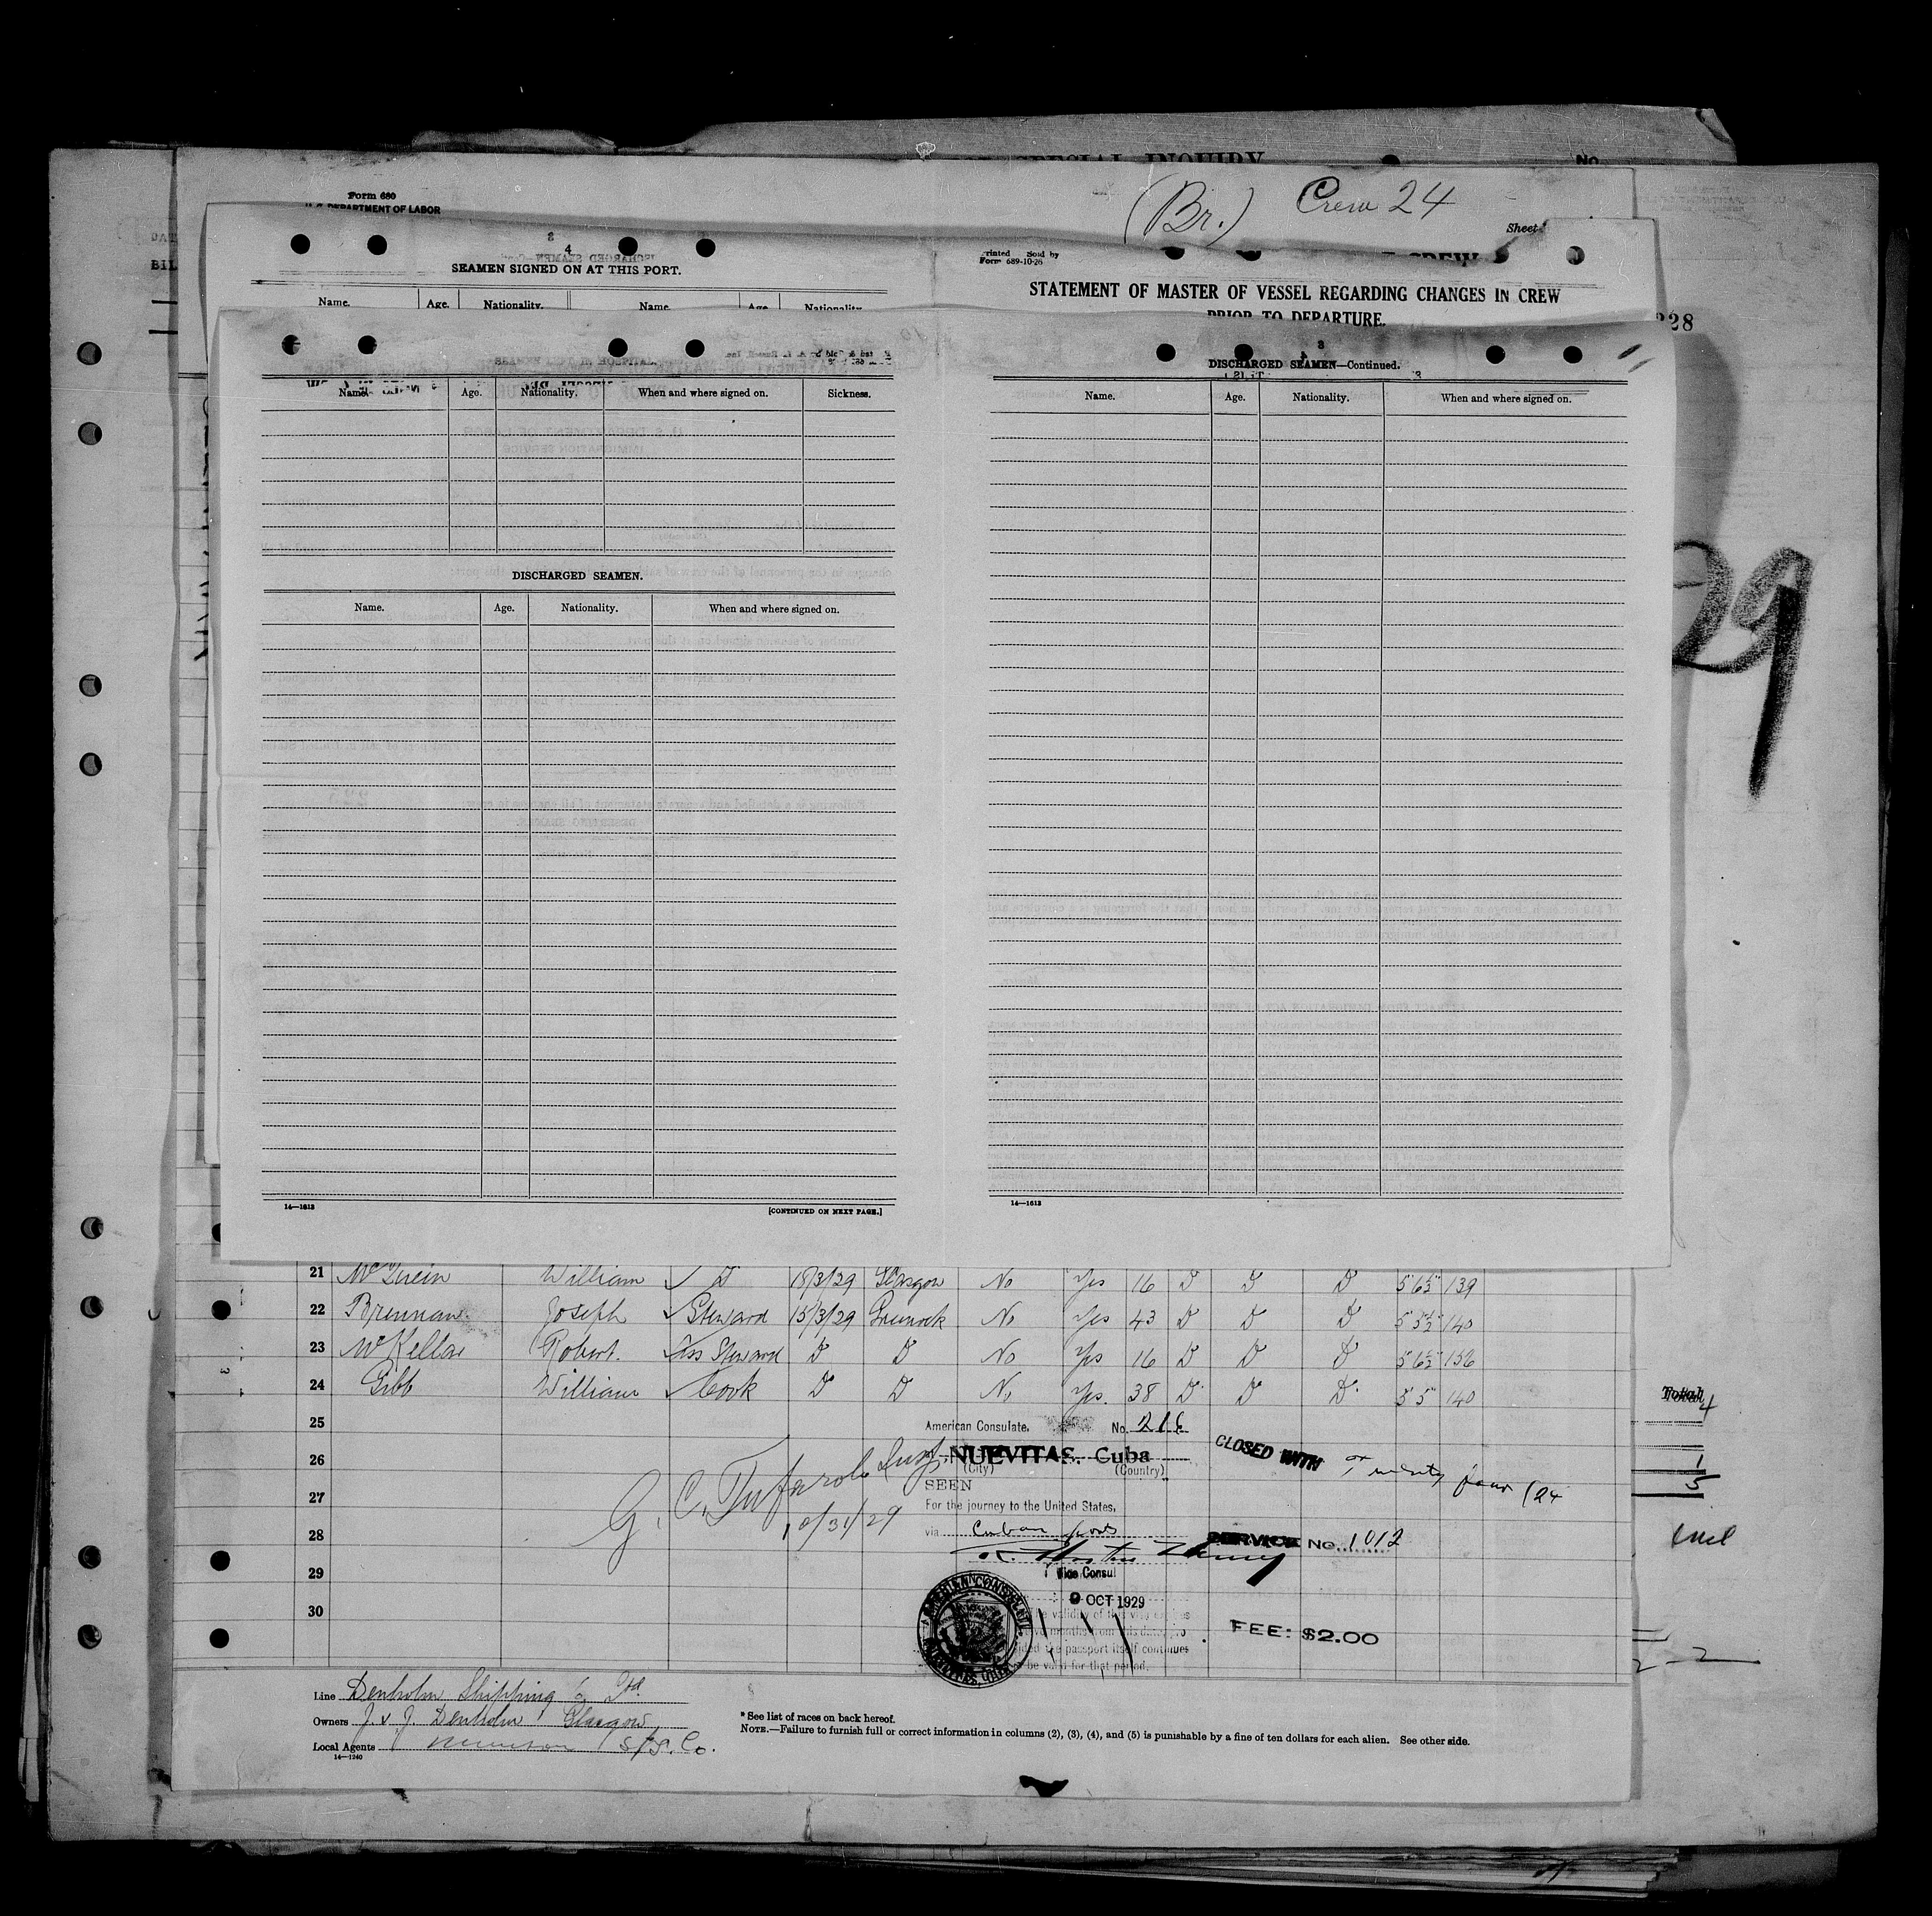 SPECIAL INQUIRY
No.
Form 680
U.S. DEPARTMENT OF LABOR
(Br.) Crew 24
Sheet
4
SEAMEN SIGNED ON AT THIS PORT.
Name. Age. Nationality. Name. Age. Nationality.
Printed Sold by
Form 689-10-26
STATEMENT OF MASTER OF VESSEL REGARDING CHANGES IN CREW
PRIOR TO DEPARTURE.
228
29
Name. Age. Nationality. When and where signed on. Sickness.
DISCHARGED SEAMEN.
Name. Age. Nationality. When and where signed on.
14—1613
[CONTINUED ON NEXT PAGE.]
3
DISCHARGED SEAMEN—Continued.
Name. Age. Nationality. When and where signed on.
14—1613
21 William ✓ D 18/3/29 Glasgow No Yes 16 D D D 5'6½" 139
22 Brennan Joseph ✓ Steward 15/3/29 Greenock No Yes 43 D D D 5'5½" 140
23 McKellar Robert. ✓ Ass Steward D D No Yes 16 D D D 5'6½" 156
24 Gibb William ✓ Cook D D No Yes. 38 D D D 5'5" 140
25
26
27
28
29
30
American Consulate, No. 216
NUEVITAS, Cuba
(City) (Country)
SEEN
For the journey to the United States,
via Cuban ports
Vice Consul
9 OCT 1929
The validity of this visa expires
months from this date, pro-
vided the passport itself continues
to be valid for that period.
G. C. Insp.
10/31/29
CLOSED WITH Twenty four (24
SERVICE No. 1012
FEE: $2.00
Total
4
1
5
Line Denholm Shipping Co Ltd.
Owners J. & J. Denholm Glasgow
Local Agents Munson S/S. Co.
14—1240
* See list of races on back hereof.
NOTE.—Failure to furnish full or correct information in columns (2), (3), (4), and (5) is punishable by a fine of ten dollars for each alien. See other side.